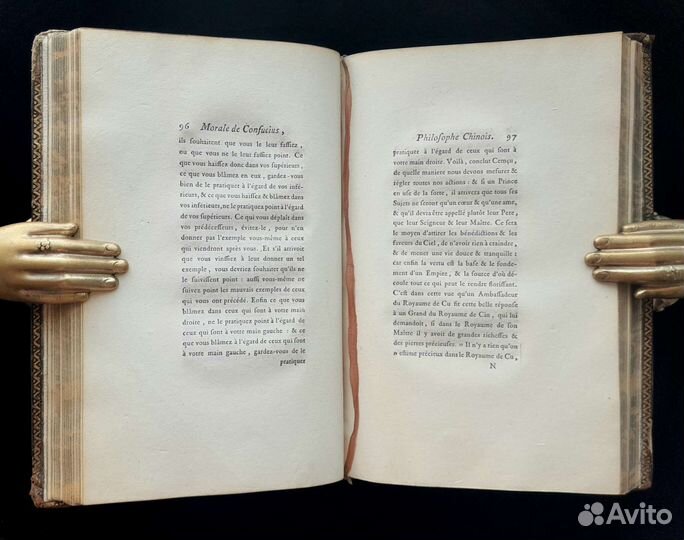 96 Morale de Confucius,
ils souhaitent que vous le leur fassiez,
ou que vous ne le leur fassiez point. Ce
que vous haïssez donc dans vos supérieurs,
ce que vous blâmez en eux, gardez-vous
bien de le pratiquer à l'égard de vos infé-
rieurs, & ce que vous haïssez & blâmez dans
vos inférieurs, ne le pratiquez point à l'égard
de vos supérieurs. Ce qui vous déplaît dans
vos prédécesseurs, évitez-le, pour n'en
donner pas l'exemple vous-même à ceux
qui viendront après vous. Et s'il arrivoit
que vous vinssiez à leur donner un tel
exemple, vous devriez souhaiter qu'ils ne
le suivissent point : aussi vous-même ne
suivez point les mauvais exemples de ceux
qui vous ont précédé. Enfin ce que vous
blâmez dans ceux qui sont à votre main
droite, ne le pratiquez point à l'égard de
ceux qui sont à votre main gauche : & ce
que vous blâmez à l'égard de ceux qui sont
à votre main gauche, gardez-vous de le
pratiquer
Philosophe Chinois. 97
pratiquer à l'égard de ceux qui sont à
votre main droite. Voilà, conclut Cemçu,
de quelle maniere nous devons mesurer &
régler toutes nos actions : & si un Prince
en use de la sorte, il arrivera que tous ses
Sujets ne seront qu'un cœur & qu'une ame,
& qu'il devra être appellé plutôt leur Pere,
que leur Seigneur & leur Maître. Ce sera
le moyen d'attirer les bénédictions & les
faveurs du Ciel, de n'avoir rien à craindre,
& de mener une vie douce & tranquille :
car enfin la vertu est la base & le fonde-
ment d'un Empire, & la source d'où dé-
coule tout ce qui peut le rendre florissant.
C'est dans cette vue qu'un Ambassadeur
du Royaume de Cu fit cette belle réponse
à un Grand du Royaume de Cin, qui lui
demandoit, si dans le Royaume de son
Maître il y avoit de grandes richesses &
des pierres précieuses. » Il n'y a rien qu'on
» estime précieux dans le Royaume de Cu,
N
Avito